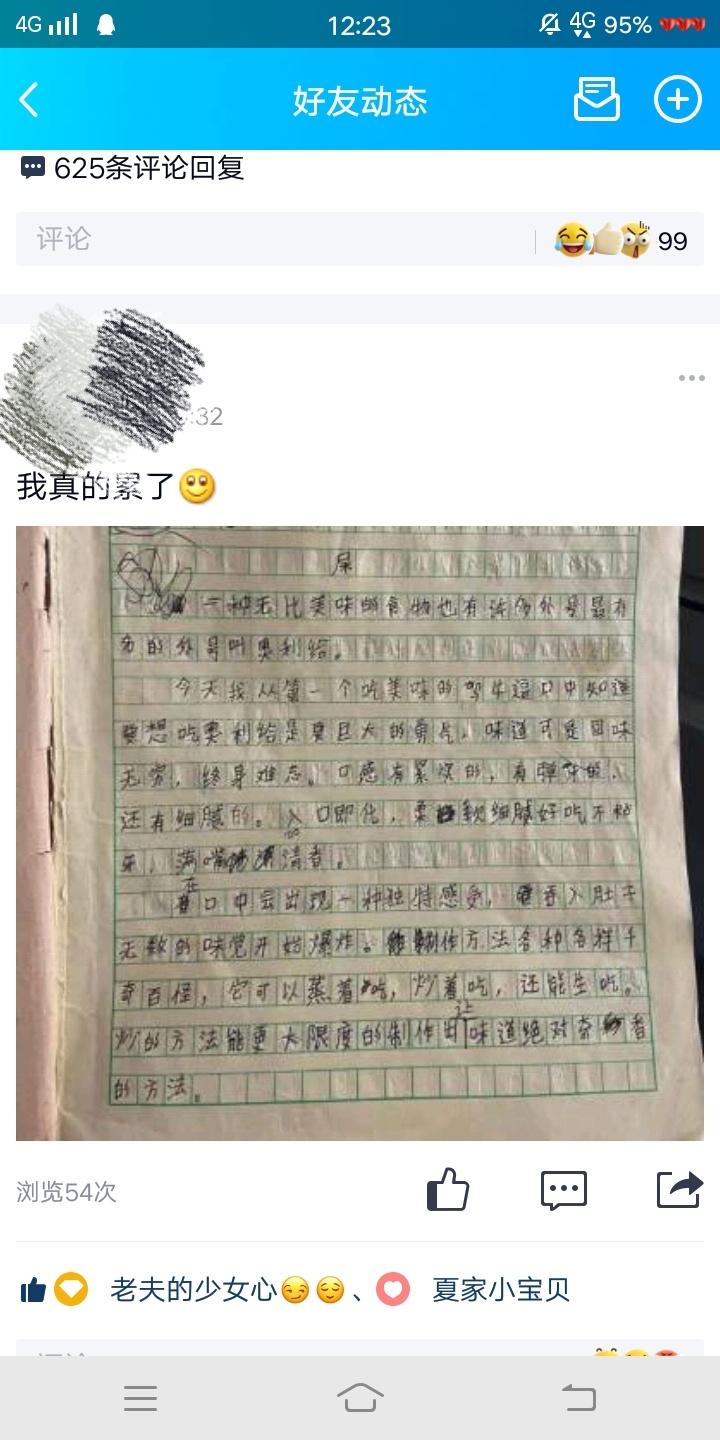 4G 12:23 4G 95%
好友动态
625条评论回复
评论 99
:32
我真的累了
屎
一种无比美味的食物也有许多外号最有
的外号叫奥利给。
今天我从第一个吃美味的驾牛逼口中知道
要想吃奥利给是要巨大的勇气，味道可是回味
无穷，终身难忘。口感有累实的，有弹牙的、
还有细腻的。入口即化，柔软细腻好吃不粘
牙，满嘴清香。
在口中会出现一种独特感觉，吞入肚子
无数的味觉开始爆炸。制作方法各种各样千
奇百怪，它可以蒸着吃，炒着吃，还能生吃。
炒的方法能更大限度的制作出味道绝对
的方法。
浏览54次
老夫的少女心、 夏家小宝贝